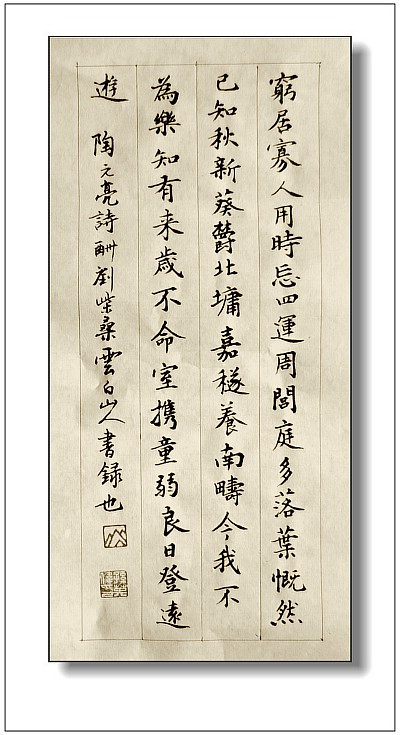 窮居寡人用時忘四運周閭庭多落葉慨然
已知秋新葵鬱北墉嘉穟養南疇今我不
為樂知有来歲不命室携童弱良日登遠
遊 陶元亮詩酬劉柴桑雲白山人書録也